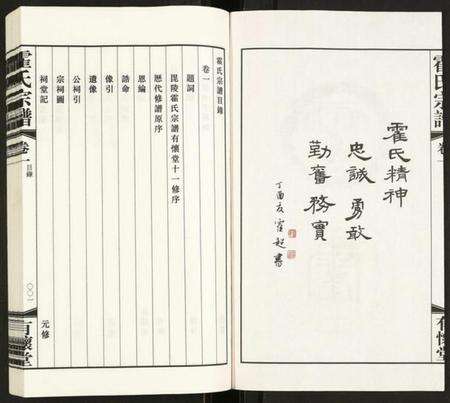 霍氏宗譜
卷一
有懷堂
霍氏精神
忠誠勇敢
勤奮務實
霍氏宗譜目錄
卷一
題詞
毘陵霍氏宗譜有懷堂十一修序
歷代修譜原序
恩綸
誥命
像引
遺像
公祠引
宗祠圖
祠堂記
元修
霍氏宗譜
卷一
目錄
〇〇一
有懷堂